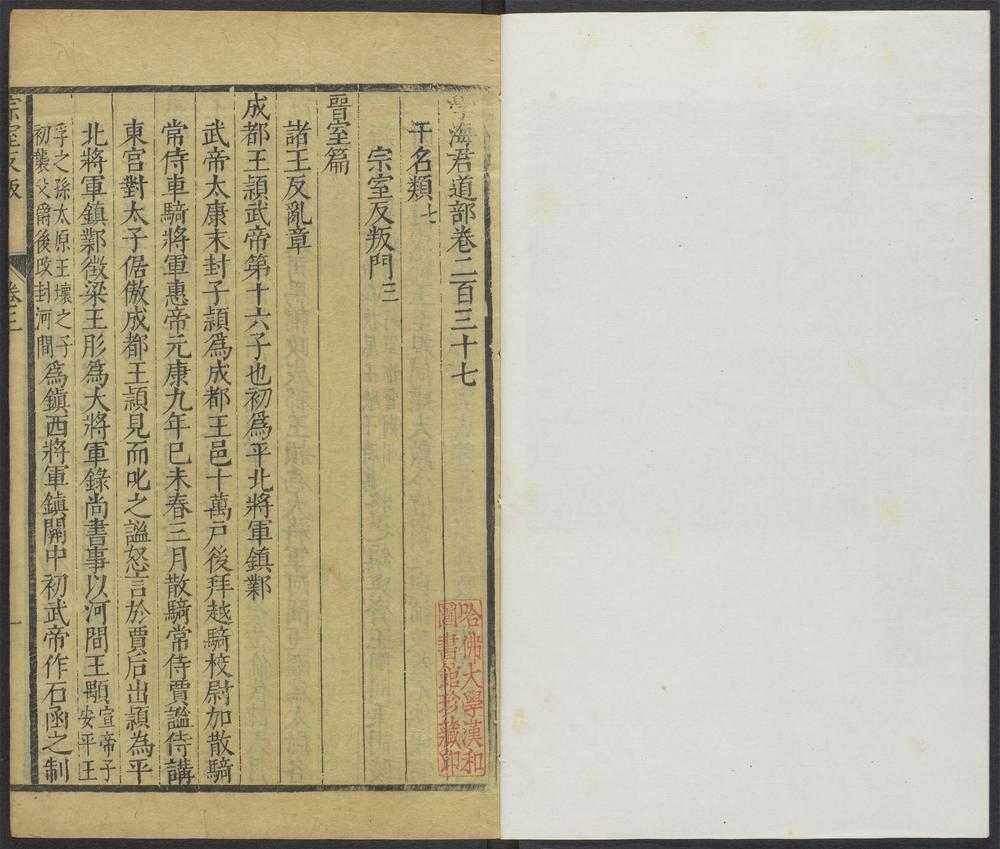 粤海君道部卷二百三十七
干名類七
宗室反叛門三
晉室篇
諸王反亂章
成都王頴武帝第十六子也初爲平北將軍鎮鄴
武帝太康末封子頴爲成都王邑十萬戸後拜越騎校尉加散騎
常侍車騎將軍惠帝元康九年巳未春三月散騎常侍賈謐侍講
東宮對太子倨傲成都王頴見而叱之謐怒言於賈后出頴為平
北將軍鎮鄴徵梁王肜爲大將軍錄尚書事以河間王顒宣帝子安平王
孚之孫太原王壞之子初襲父爵後改封河間爲鎭西將軍鎮關中初武帝作石函之制
宗室反叛
卷三
一
哈佛大學漢和
圖書館珍藏印